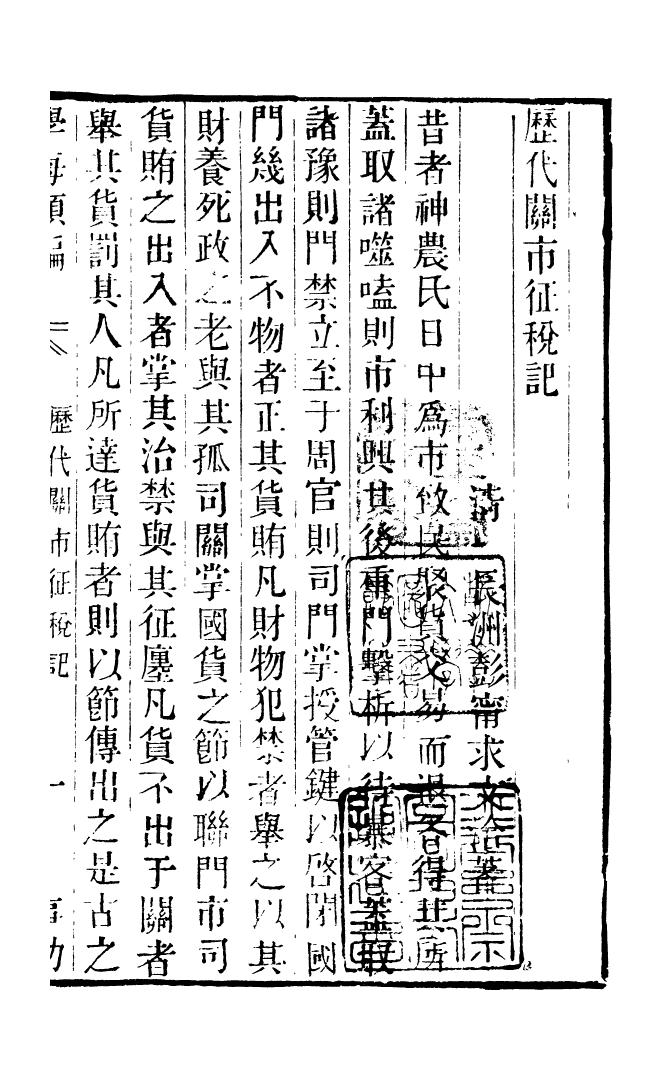 歷代關市征稅記
清 長洲彭甯求文洽著
昔者神農氏日中爲市致民聚貨交易而退各得其所
蓋取諸噬嗑則市利興其後重門擊柝以待暴客蓋取
諸豫則門禁立至于周官則司門掌授管鍵以啓閉國
門幾出入不物者正其貨賄凡財物犯禁者舉之以其
財養死政之老與其孤司關掌國貨之節以聯門市司
貨賄之出入者掌其治禁與其征廛凡貨不出于關者
舉其貨罰其人凡所達貨賄者則以節傳出之是古之
學海類編 歷代關市征稅記 一 事功